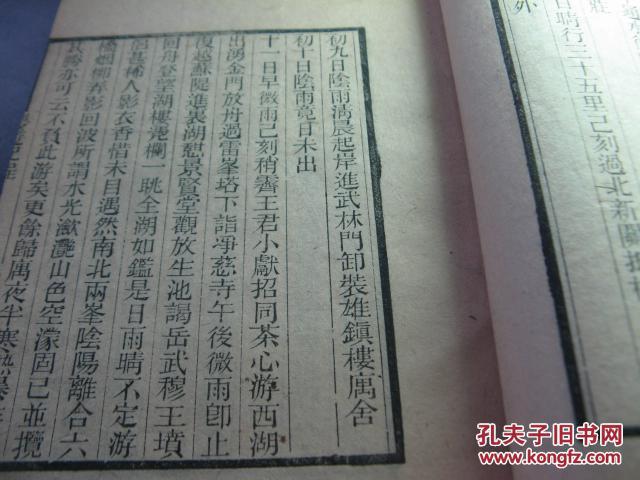 莊
日晴行三十五里已刻過北新關
外
初九日陰雨淸晨起岸進武林門卸裝雄鎭樓寓舍
初十日陰雨竟日未出
十一日早微雨已刻稍霽王君小獻招同茶心游西湖
出湧金門放舟過雷峯塔下詣淨慈寺午後微雨卽止
復起蘇隄進裏湖憇景賢堂觀放生池謁岳武穆王墳
回舟登望湖樓凭欄一眺全湖如鑑是日雨晴不定游
侶甚稀人影衣香惜未目遇然南北兩峯陰陽離合六
橋烟柳弄影回波所謂水光瀲灔山色空濛固已並攬
其勝亦可云不負此游矣更餘歸寓夜半寒熱
孔夫子旧书网
www.kongfz.com